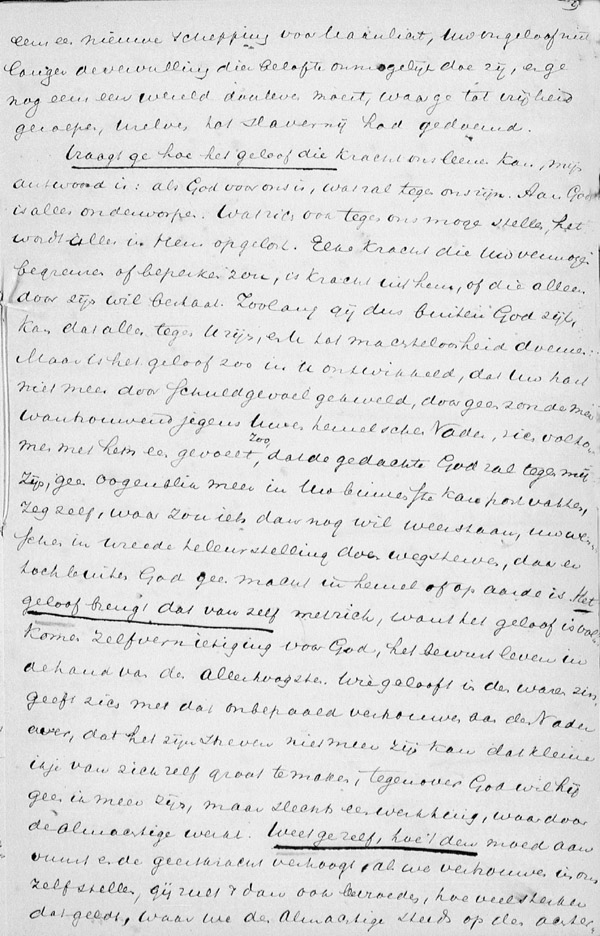 eens een nieuwe schepping voor U aanlicht, Uw ongeloof niet
langer de vervulling dier belofte onmogelijk doe zij, en ge
nog eens een wereld doorleven moest, waar ge tot vrijheid
geroepen, U zelven tot slavernij had gedoemd.
Vraagt ge hoe het geloof die kracht ons leenen kan, mijn
antwoord is: als God voor ons is, wat zal tegen ons zijn. Aan God
is alles onderworpen. Wat zich ook tegen ons moge stellen, het
wordt alles in Hem opgelost. Elke kracht die Uw vermogen
begrenzen of beperken zou, is kracht uit hem, of die alleen
door zijn wil bestaat. Zoolang gij dus buiten God zijt,
kan dat alles tegen U zijn, en U tot machteloosheid doemen.
Maar is het geloof zoo in U ontwikkeld, dat Uw hart
niet meer door schuldgevoel gekweld, door geen zonde meer
wantrouwend jegens Uwen hemelschen Vader, zich volko-
men met hem een gevoelt, zoo dat de gedachte God zal tegen mij
zijn, geen oogenblik meer in Uw binnenste kan post vatten,
zeg zelf, waar zou iets dan nog wil weerstaan, uw wen-
schen in wreede teleurstelling doen wegsterven, daar er
toch buiten God geen macht in hemel of op aarde is. Het
geloof brengt dat van zelf met zich, want het geloof is vol-
komen zelfvernietiging voor God, het bewust leven in
de hand van den Allerhoogsten. Wie gelooft in den waren zin,
geeft zich met dat onbepaald vertrouwen aan den Vader
over, dat het zijn streven niet meer zijn kan dat kleine
ikje van zich zelf groot te maken, tegenover God wil hij
geen ik meer zijn, maar slechts een werktuig, waardoor
de Almachtige werkt. Weet ge zelf, hoe 't den moed aan
vuurt en de geestkracht verhoogt, als we vertrouwen in ons
zelf stellen, gij zult 't dan ook bevroeden, hoe veel sterker
dat geldt, waar we den Almachtige steeds op den achter-